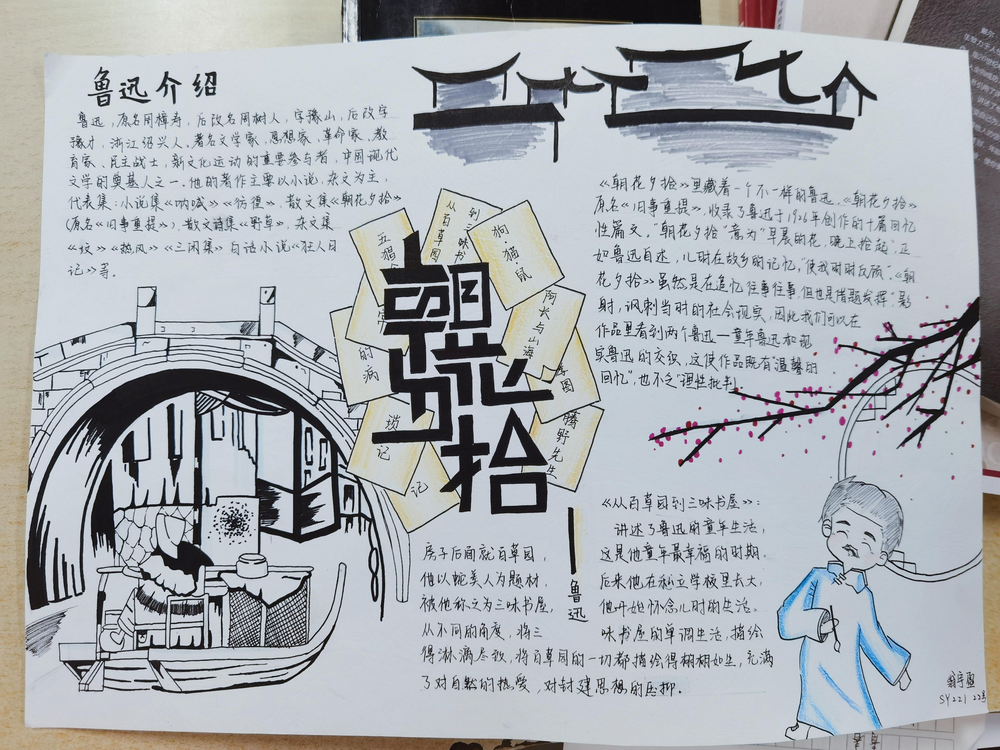 鲁迅介绍
鲁迅，原名周樟寿，后改名周树人，字豫山，后改字
豫才，浙江绍兴人。著名文学家、思想家、革命家、教
育家、民主战士，新文化运动的重要参与者，中国现代
文学的奠基人之一。他的著作主要以小说、杂文为主，
代表集：小说集《呐喊》《彷徨》、散文集《朝花夕拾》
(原名《旧事重提》)、散文诗集《野草》、杂文集
《坟》《热风》《三闲集》白话小说《狂人日
记》等。
《朝花夕拾》里藏着一个不一样的鲁迅。《朝花夕拾》
原名《旧事重提》，收录了鲁迅于1926年创作的十篇回忆
性篇文，"朝花夕拾"意为"早晨的花，晚上拾起"。正
如鲁迅自述，儿时在故乡的记忆，"使我时时反顾"。《朝
花夕拾》虽然是在追忆往事往事，但也是借题发挥，影
射，讽刺当时的社会现实，因此我们可以在
作品里看到两个鲁迅—童年鲁迅和现
实鲁迅的交织，这使作品既有温馨的
回忆"，也不乏"理性批判
五猖
从百草园
到三味书
狗·猫·鼠
阿长与山海
的病
琐记
记
孝图
藤野先生
朝花夕拾
鲁迅
《从百草园到三味书屋》：
讲述了鲁迅的童年生活，
这是他童年最幸福的时期。
后来他在私立学校里长大，
他开始怀念儿时的生活。
味书屋的单调生活，描绘
房子后面就百草园，
他以蛇美人为题材，
被他称之为三味书屋，
从不同的角度，将三
得淋漓尽致，将百草园的一切都描绘得栩栩如生，充满
了对自然的热爱，对封建思想的压抑。
SY221 22号